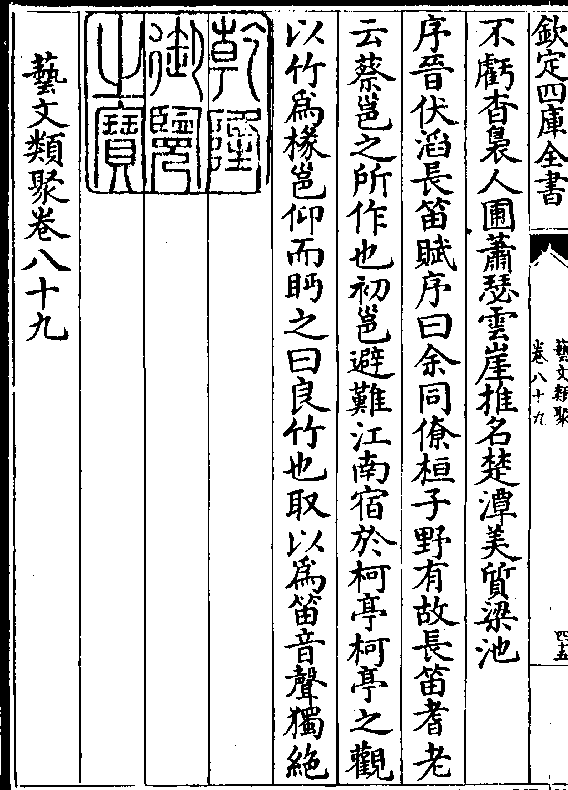 欽定四庫全書
藝文類聚
卷八十九
四五
不虧杳裊人圃蕭瑟雲崖推名楚潭美質梁池
序晉伏滔長笛賦序曰余同僚桓子野有故長笛耆老
云蔡邕之所作也初邕避難江南宿於柯亭柯亭之觀
以竹為椽邕仰而眄之曰良竹也取以為笛音聲獨絶
乾隆
御覽
之寶
藝文類聚卷八十九